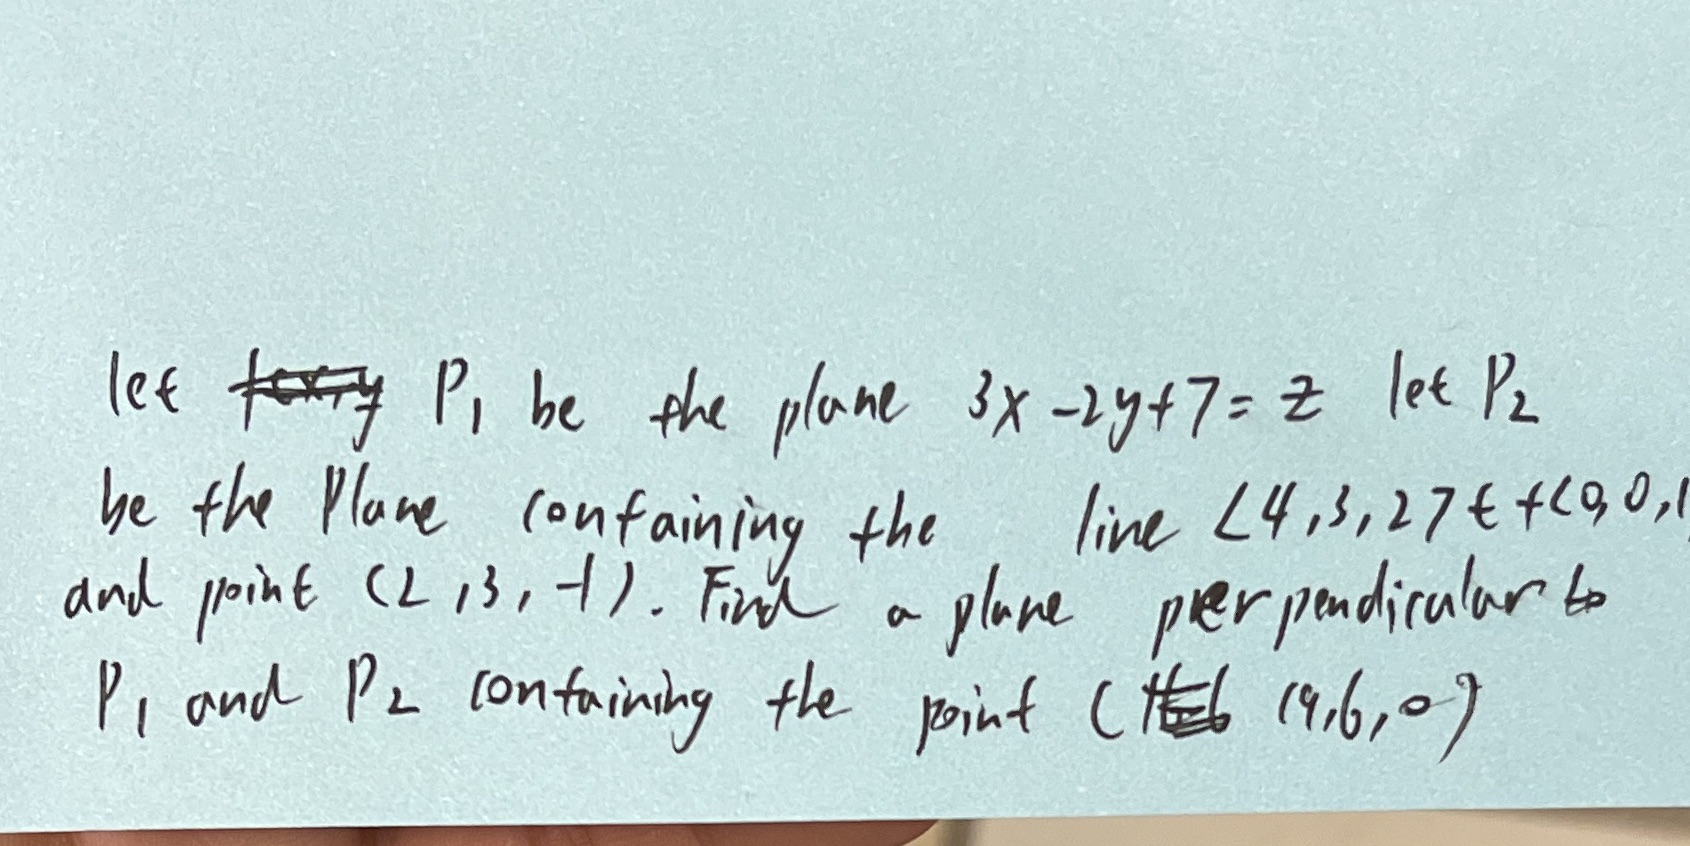 let P₁ be the plane 3x-2y+7=z let P₂
be the Plane containing the line <4,3,2>t+<0,0,1
and point (2,3,-1). Find a plane perpendicular to
P₁ and P₂ containing the point ( (9,6,0)